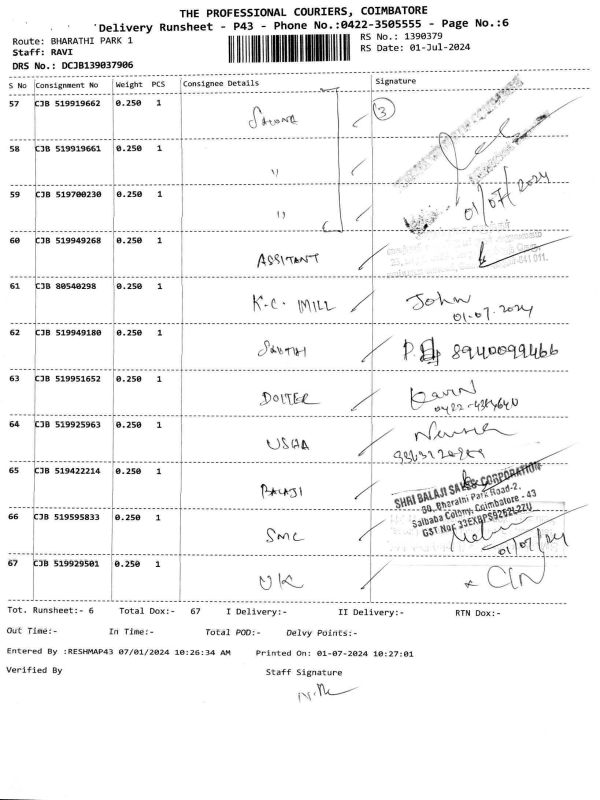 THE PROFESSIONAL COURIERS, COIMBATORE
Delivery Runsheet - P43 - Phone No.:0422-3505555 - Page No.:6
Route: BHARATHI PARK 1 RS No.: 1390379
Staff: RAVI RS Date: 01-Jul-2024
DRS No.: DCJB139037906
S No Consignment No Weight PCS Consignee Details Signature
57 CJB 519919662 0.250 1 3
58 CJB 519919661 0.250 1 "
59 CJB 519700230 0.250 1 " 01/07/2024
60 CJB 519949268 0.250 1 ASSITANT
61 CJB 80540298 0.250 1 K.C. MILL John
01.07.2024
62 CJB 519949180 0.250 1 8940099466
63 CJB 519951652 0.250 1
64 CJB 519925963 0.250 1 USHA
65 CJB 519422214 0.250 1 BALAJI
SHRI BALAJI SALES CORPORATION
80, Bharathi Park Road-2,
Saibaba Colony, Coimbatore - 43
66 CJB 519595833 0.250 1 SMC 01/07/24
67 CJB 519929501 0.250 1 UK
Tot. Runsheet:- 6 Total Dox:- 67 I Delivery:- II Delivery:- RTN Dox:-
Out Time:- In Time:- Total POD:- Delvy Points:-
Entered By :RESHMAP43 07/01/2024 10:26:34 AM Printed On: 01-07-2024 10:27:01
Verified By Staff Signature